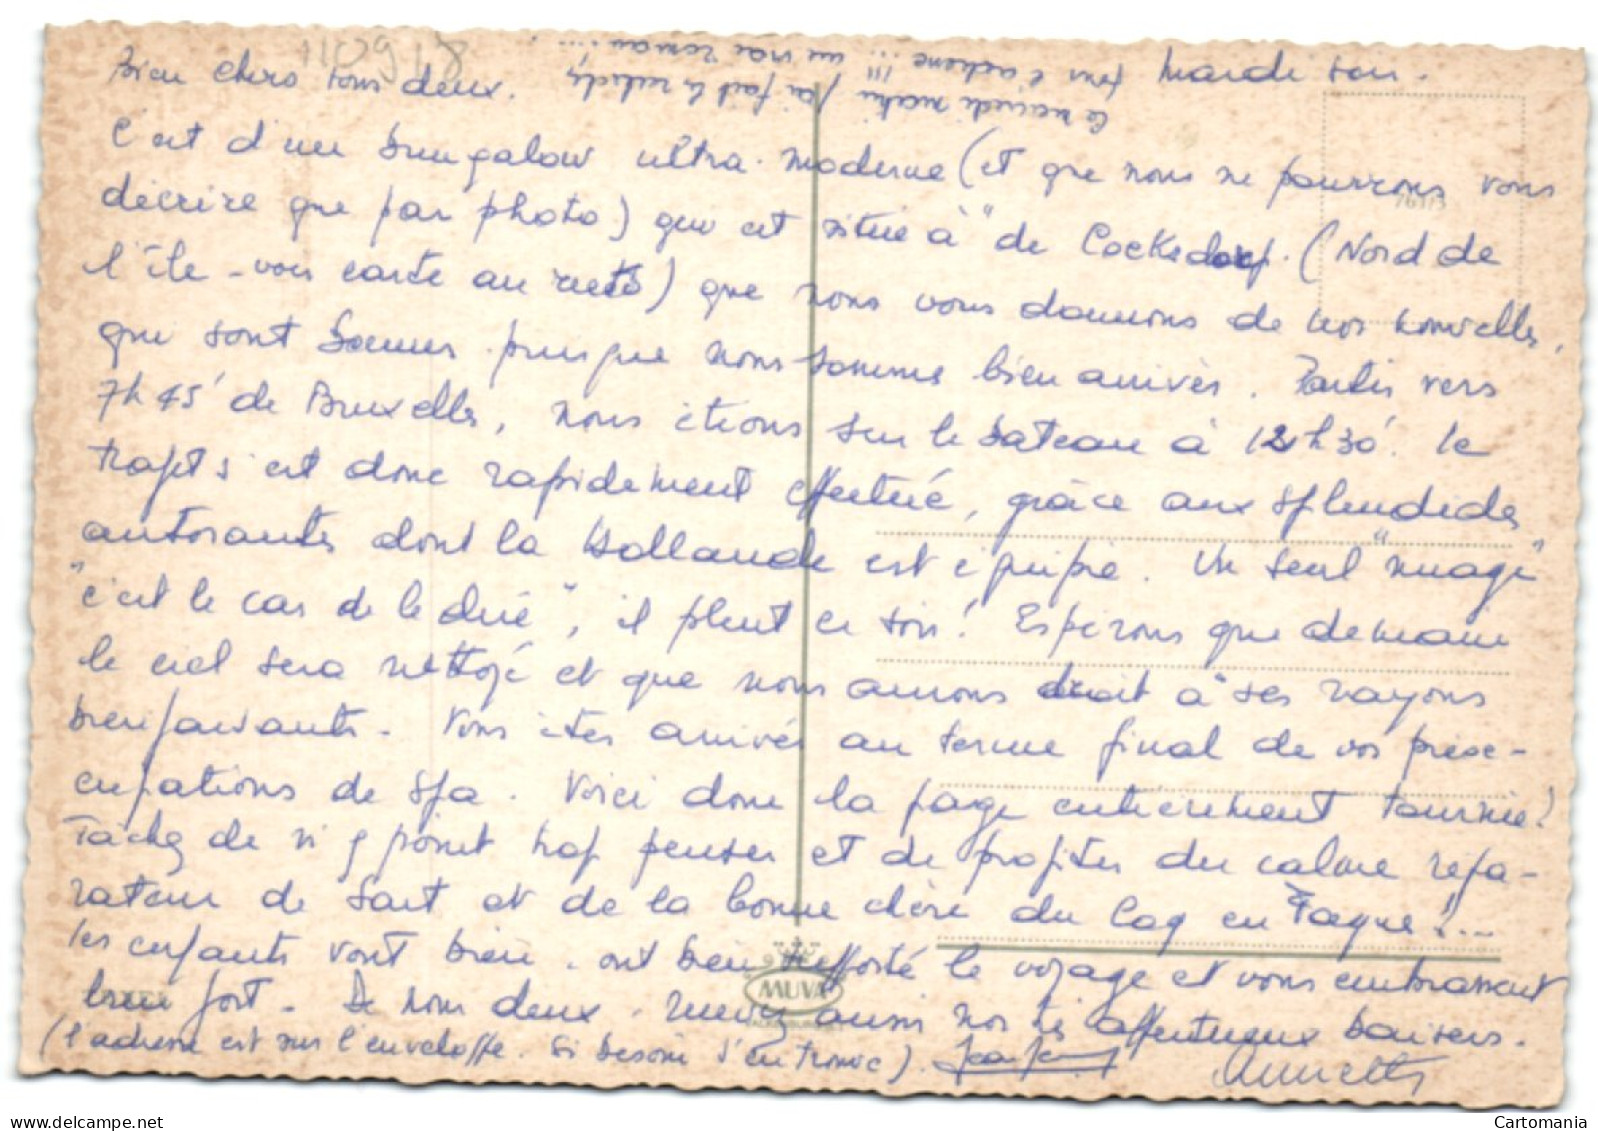 Mardi soir.
Bien chers tous deux.
C'est d'un bungalow ultra-moderne (et que nous ne pourrons vous
décrire que par photo) qui est situé à de Cockedorp. (Nord de
l'île - voir carte au recto) que nous vous donnons de nos nouvelles,
qui sont bonnes puisque nous sommes bien arrivés. Partis vers
7h45' de Bruxelles, nous étions sur le bateau à 12h30'. Le
trajet s'est donc rapidement effectué, grâce aux splendides
autoroutes dont la Hollande est équipée. Un seul "nuage"
"c'est le cas de le dire", il pleut ce soir! Espérons que demain
le ciel sera nettoyé et que nous aurons droit à ses rayons
bienfaisants. Vous êtes arrivés au terme final de vos préoc-
cupations de Spa. Voici donc la page entièrement tournée!
Tâchez de n'y point trop penser et de profiter du calme répa-
rateur de Sart et de la bonne chère du Coq en Fagne!...
Les enfants vont bien, ont bien supporté le voyage et vous embrassent
bien fort. De nous deux, recevez aussi nos très affectueux baisers.
(L'adresse est sur l'enveloppe. Si besoin s'en trouve).
Annette
Ce mercredi matin j'ai fait la
pour l'adresse !!! un vrai roman ....
MUVA
Cartomania